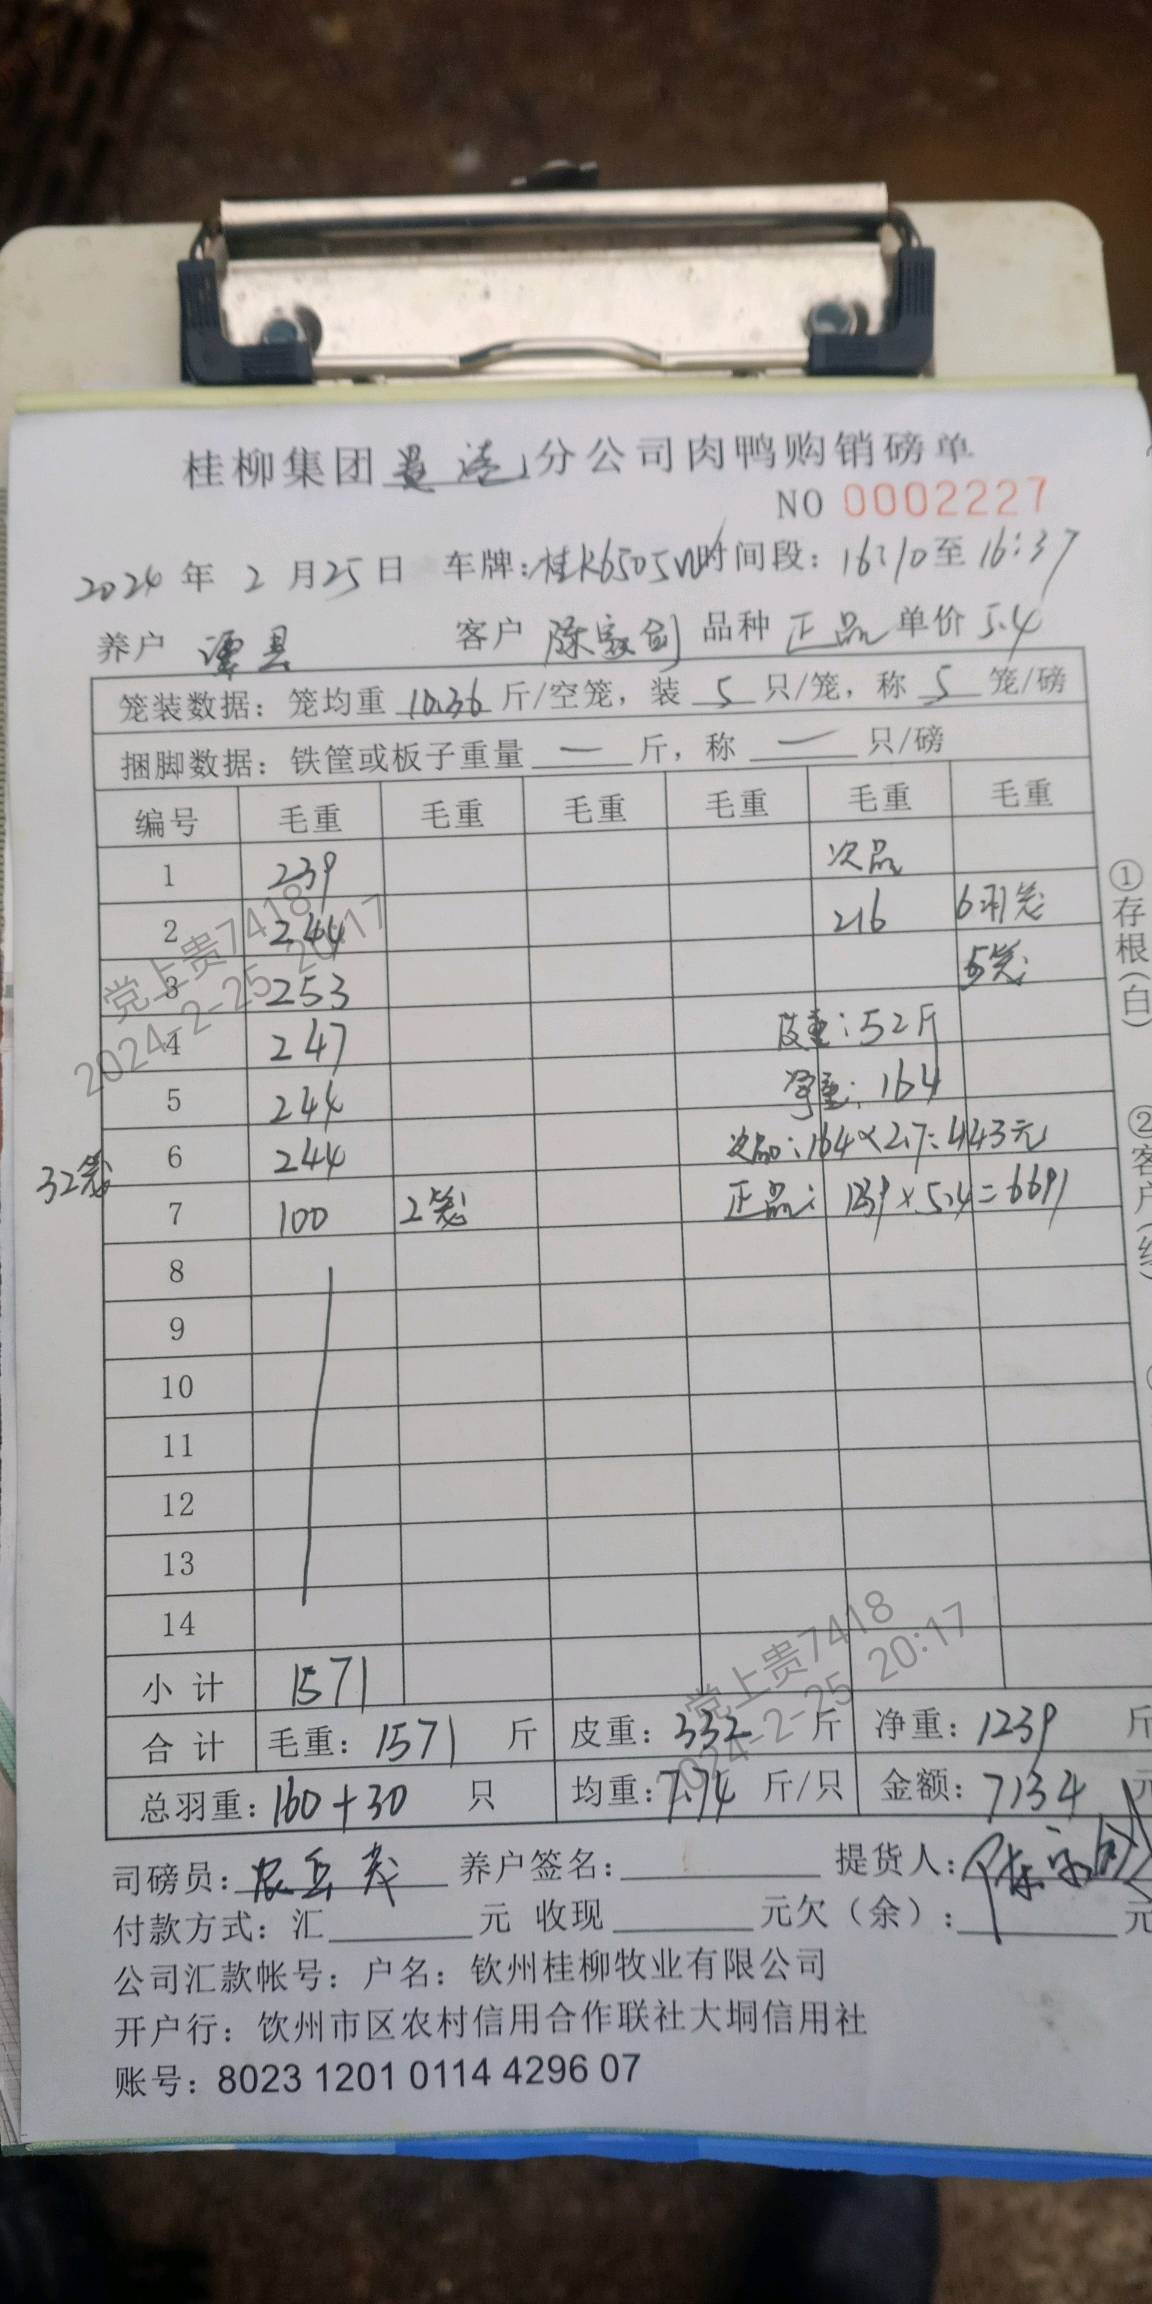 桂柳集团贵港分公司肉鸭购销磅单
NO 0002227
2024年2月25日 车牌:桂K6505W 时间段:16:10至16:37
养户 谭县 客户 陈家剑 品种 正品 单价 5.4
笼装数据:笼均重 10.36 斤/空笼,装 5 只/笼,称 5 笼/磅
捆脚数据:铁筐或板子重量 — 斤,称 — 只/磅
编号 毛重 毛重 毛重 毛重 毛重 毛重
1 239 次品
2 244 216 6羽笼
3 253 5笼
4 247 皮重:52斤
5 244 净重:164
6 244 次品:164×2.7=443元
32笼
7 100 2笼 正品:1239×5.4=6691
8
9
10
11
12
13
14
小计 1571
合计 毛重:1571 斤 皮重:332 斤 净重:1239 斤
总羽重:160+30 只 均重:7.74 斤/只 金额:7134 元
司磅员: 养户签名: 提货人:陈家剑
付款方式:汇 元 收现 元欠(余): 元
公司汇款帐号:户名:钦州桂柳牧业有限公司
开户行:饮州市区农村信用合作联社大垌信用社
账号:8023 1201 0114 4296 07
①存根(白)
②客户(红)
党上贵7418
2024-2-25 20:17
党上贵7418
2024-2-25 20:17